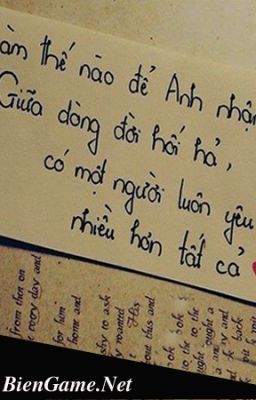 àm thế nào để Anh nhận
Giữa dòng đời hối hả,
có một người luôn yêu
nhiều hơn tất cả
from then on
e every day and
for him
home and
shy to ask
y roamed
His
one this and
to the to the
ought a
and
back
BienGame.Net